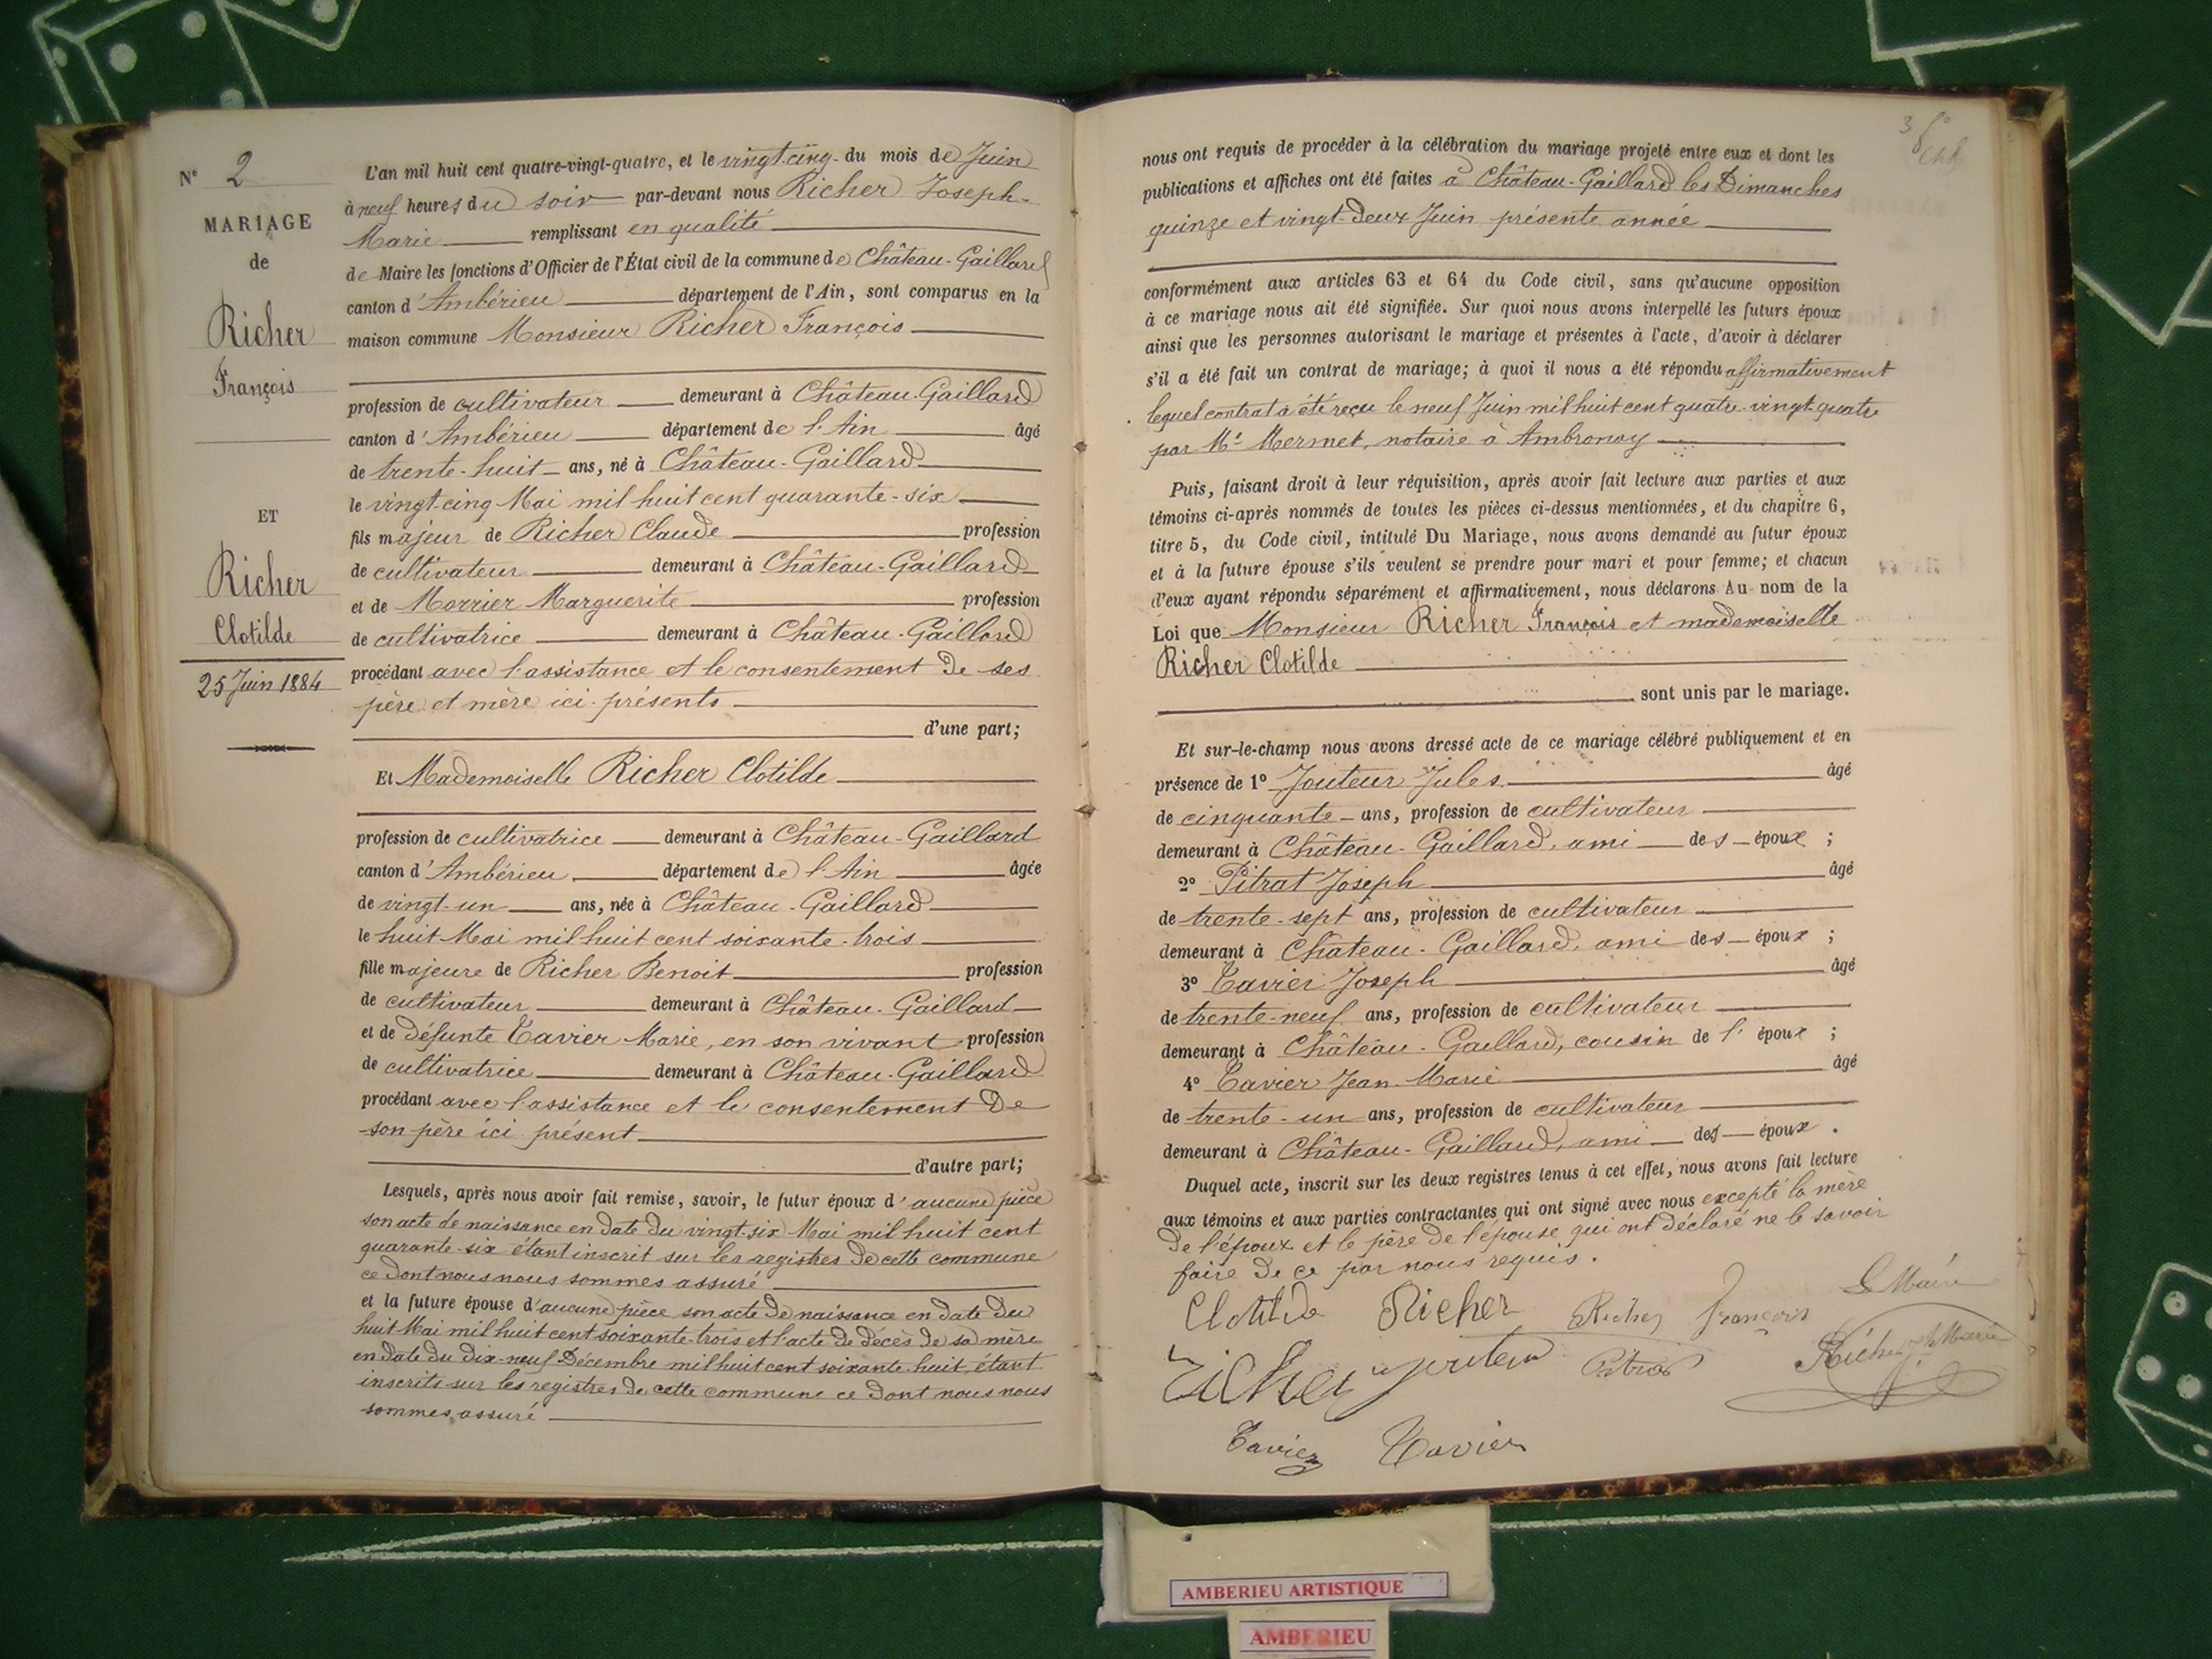 N° 2
MARIAGE
de
Richer
François
ET
Richer
Clotilde
25 Juin 1884
L'an mil huit cent quatre-vingt-quatre, et le vingt-cinq du mois de Juin
à neuf heures du soir par-devant nous Richer Joseph-
Marie remplissant en qualité
de Maire les fonctions d'Officier de l'État civil de la commune de Château-Gaillard
canton d'Ambérieu département de l'Ain, sont comparus en la
maison commune Monsieur Richer François
profession de cultivateur demeurant à Château-Gaillard
canton d'Ambérieu département de l'Ain âgé
de trente-huit ans, né à Château-Gaillard
le vingt-cinq Mai mil huit cent quarante-six
fils majeur de Richer Claude profession
de cultivateur demeurant à Château-Gaillard
et de Morrier Marguerite profession
de cultivatrice demeurant à Château-Gaillard
procédant avec l'assistance et le consentement de ses
père et mère ici présents
d'une part;
Et Mademoiselle Richer Clotilde
profession de cultivatrice demeurant à Château-Gaillard
canton d'Ambérieu département de l'Ain âgée
de vingt-un ans, née à Château-Gaillard
le huit Mai mil huit cent soixante-trois
fille majeure de Richer Benoit profession
de cultivateur demeurant à Château-Gaillard
et de défunte Tavier Marie, en son vivant profession
de cultivatrice demeurant à Château-Gaillard
procédant avec l'assistance et le consentement de
son père ici présent
d'autre part;
Lesquels, après nous avoir fait remise, savoir, le futur époux d'aucune pièce
son acte de naissance en date du vingt-six Mai mil huit cent
quarante-six étant inscrit sur les registres de cette commune
ce dont nous nous sommes assuré
et la future épouse d'aucune pièce son acte de naissance en date du
huit Mai mil huit cent soixante-trois et l'acte de décès de sa mère
en date du dix-neuf Décembre mil huit cent soixante-huit, étant
inscrits sur les registres de cette commune ce dont nous nous
sommes assuré
3
nous ont requis de procéder à la célébration du mariage projeté entre eux et dont les
publications et affiches ont été faites à Château-Gaillard les Dimanches
quinze et vingt-deux Juin présente année
conformément aux articles 63 et 64 du Code civil, sans qu'aucune opposition
à ce mariage nous ait été signifiée. Sur quoi nous avons interpellé les futurs époux
ainsi que les personnes autorisant le mariage et présentes à l'acte, d'avoir à déclarer
s'il a été fait un contrat de mariage; à quoi il nous a été répondu affirmativement
lequel contrat a été reçu le neuf Juin mil huit cent quatre-vingt-quatre
par Me Mermet, notaire à Ambronay
Puis, faisant droit à leur réquisition, après avoir fait lecture aux parties et aux
témoins ci-après nommés de toutes les pièces ci-dessus mentionnées, et du chapitre 6,
titre 5, du Code civil, intitulé Du Mariage, nous avons demandé au futur époux
et à la future épouse s'ils veulent se prendre pour mari et pour femme; et chacun
d'eux ayant répondu séparément et affirmativement, nous déclarons Au nom de la
Loi que Monsieur Richer François et mademoiselle
Richer Clotilde
sont unis par le mariage.
Et sur-le-champ nous avons dressé acte de ce mariage célébré publiquement et en
présence de 1° Jouteur Jules âgé
de cinquante ans, profession de cultivateur
demeurant à Château-Gaillard, ami des époux ;
2° Pitrat Joseph âgé
de trente-sept ans, profession de cultivateur
demeurant à Château-Gaillard, ami des époux ;
3° Tavier Joseph âgé
de trente-neuf ans, profession de cultivateur
demeurant à Château-Gaillard, cousin de l'époux ;
4° Tavier Jean-Marie âgé
de trente-un ans, profession de cultivateur
demeurant à Château-Gaillard, ami des époux.
Duquel acte, inscrit sur les deux registres tenus à cet effet, nous avons fait lecture
aux témoins et aux parties contractantes qui ont signé avec nous excepté la mère
de l'époux et le père de l'épouse qui ont déclaré ne le savoir
faire de ce par nous requis.
Le Maire
Clotilde Richer Richer françois
Richer jouteur Pitrat Richer Jh Marie
Tavier Tavier
AMBERIEU ARTISTIQUE
AMBERIEU